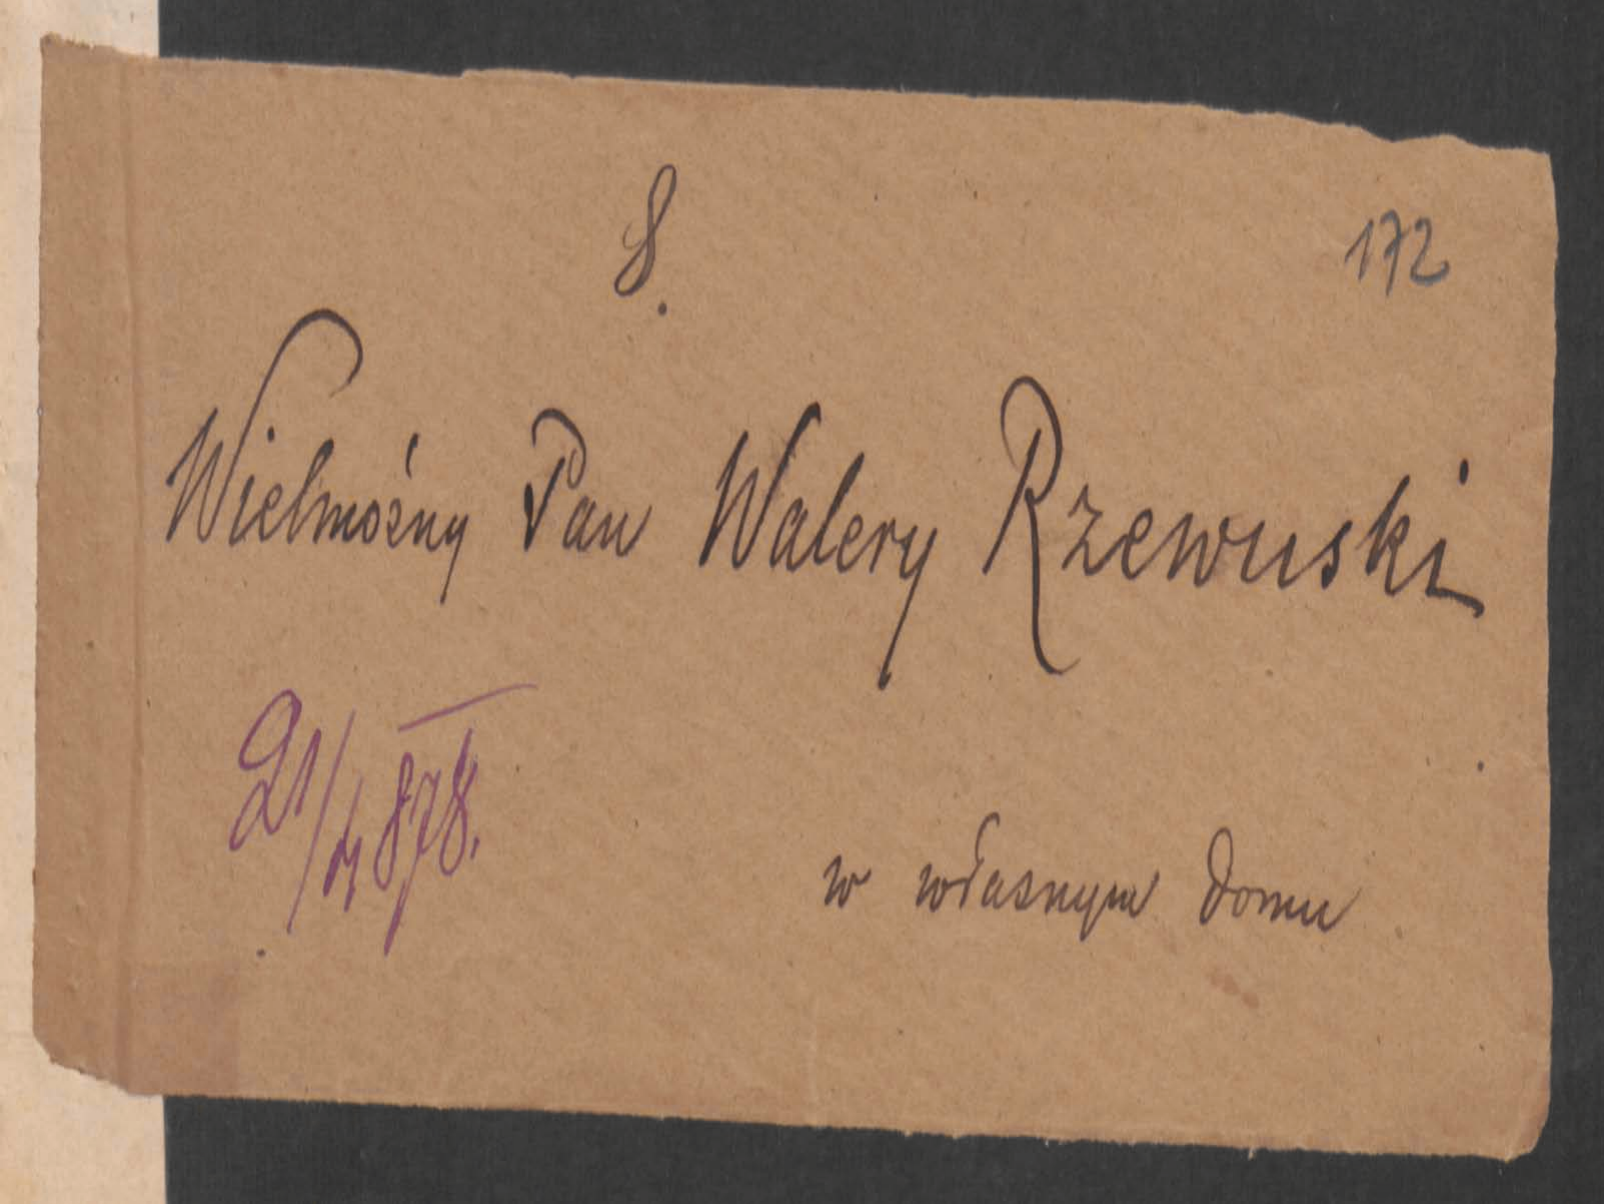 8.
172
Wielmożny Pan Walery Rzewuski
21/4 878.
w własnym domu